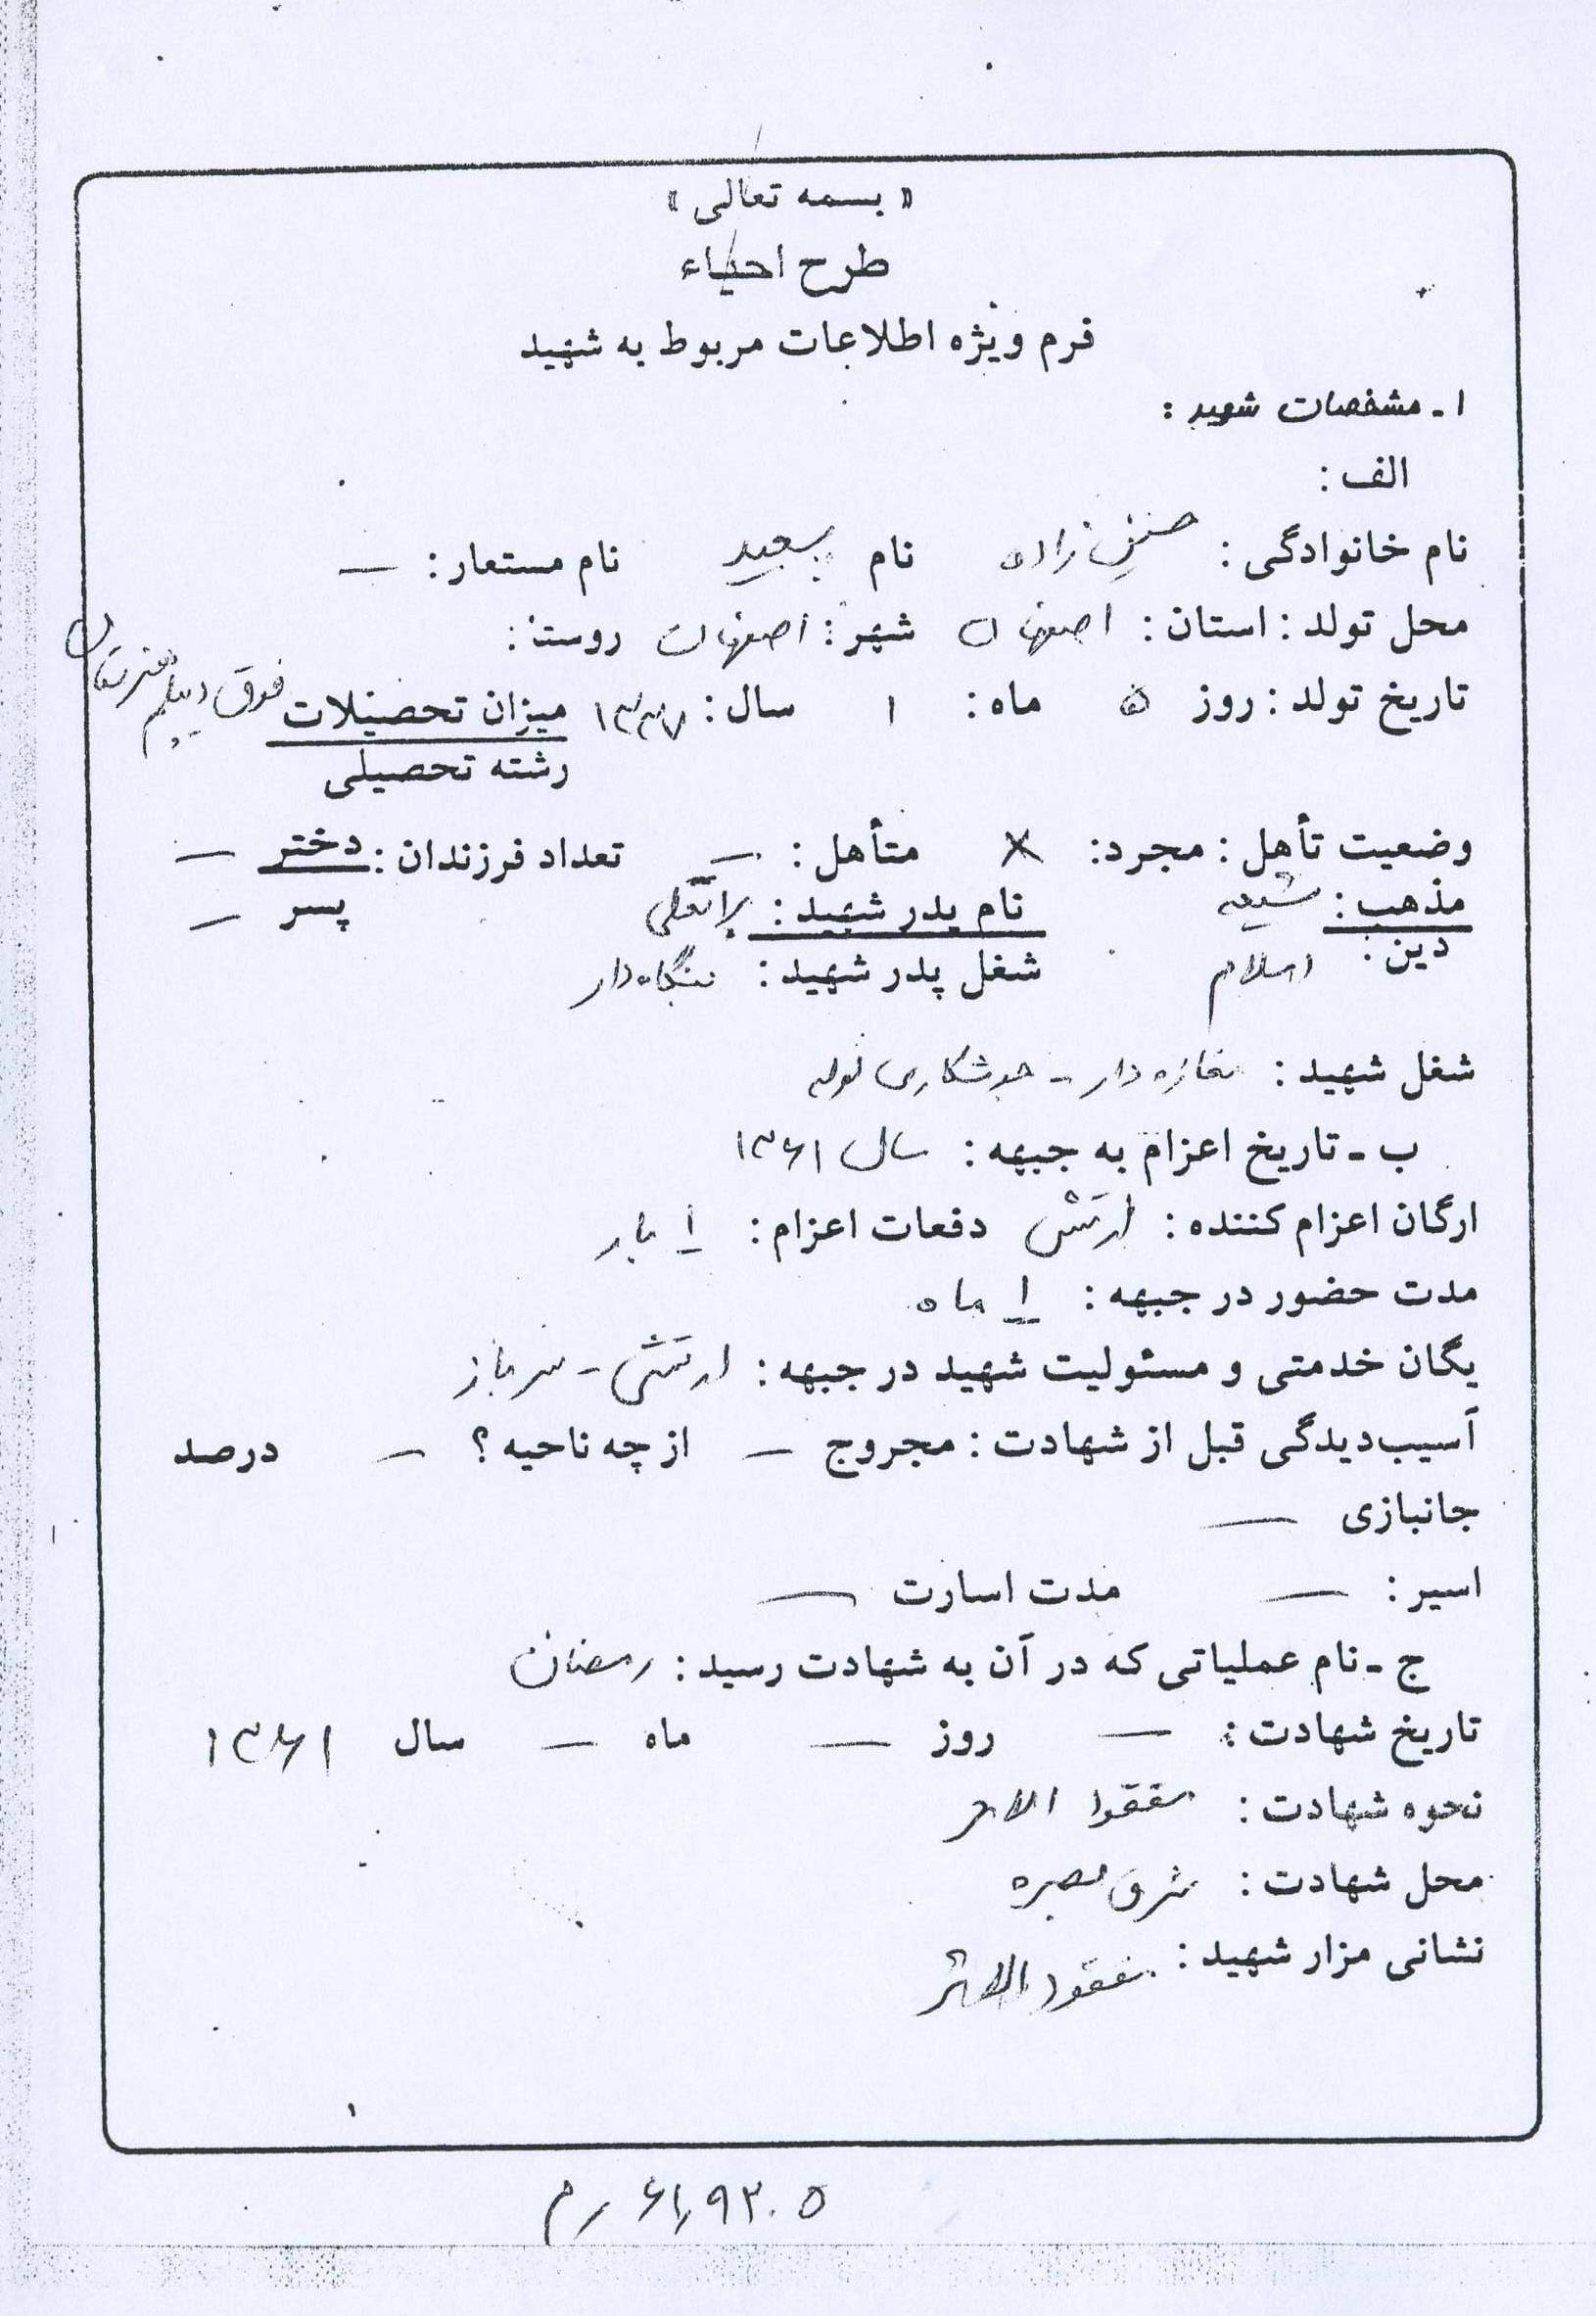 « بسمه تعالی »
طرح احیاء
فرم ویژه اطلاعات مربوط به شهید
۱ ـ مشخصات شهید :
الف :
نام خانوادگی : حسنزاده نام سعید نام مستعار : —
محل تولد : استان : اصفهان شهر : اصفهان روستا :
تاریخ تولد : روز ۵ ماه : ۱ سال : ۱۳۳۷ میزان تحصیلات فوق دیپلم
رشته تحصیلی
وضعیت تأهل : مجرد : × متأهل : — تعداد فرزندان : دختر —
پسر —
مذهب : شیعه نام پدر شهید :
دین : اسلام شغل پدر شهید : بنگاه دار
شغل شهید : مغازه دار - جوشکاری لوله
ب ـ تاریخ اعزام به جبهه : سال ۱۳۶۱
ارگان اعزام کننده : ارتش دفعات اعزام : ۱ بار
مدت حضور در جبهه : ۱ ماه
یگان خدمتی و مسئولیت شهید در جبهه : ارتش - سرباز
آسیب‌دیدگی قبل از شهادت : مجروح — از چه ناحیه ؟ — درصد
جانبازی —
اسیر : — مدت اسارت —
ج ـ نام عملیاتی که در آن به شهادت رسید : رمضان
تاریخ شهادت : — روز — ماه — سال ۱۳۶۱
نحوه شهادت : مفقود الاثر
محل شهادت : شرق بصره
نشانی مزار شهید : مفقود الاثر
۶۱٫۹۲۰۵ رم